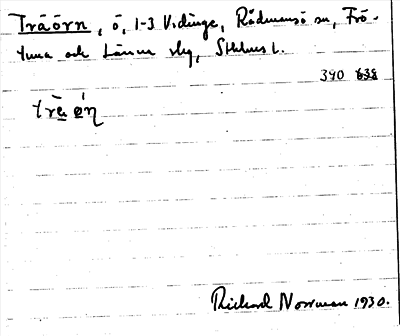 Träörn, ö, 1-3 Vidinge, Rådmansö sn, Frö-
tuna och Länna slg, Sthlms l.
390 638
trè̱ ǿ̱η
Richard Norrman 1930.